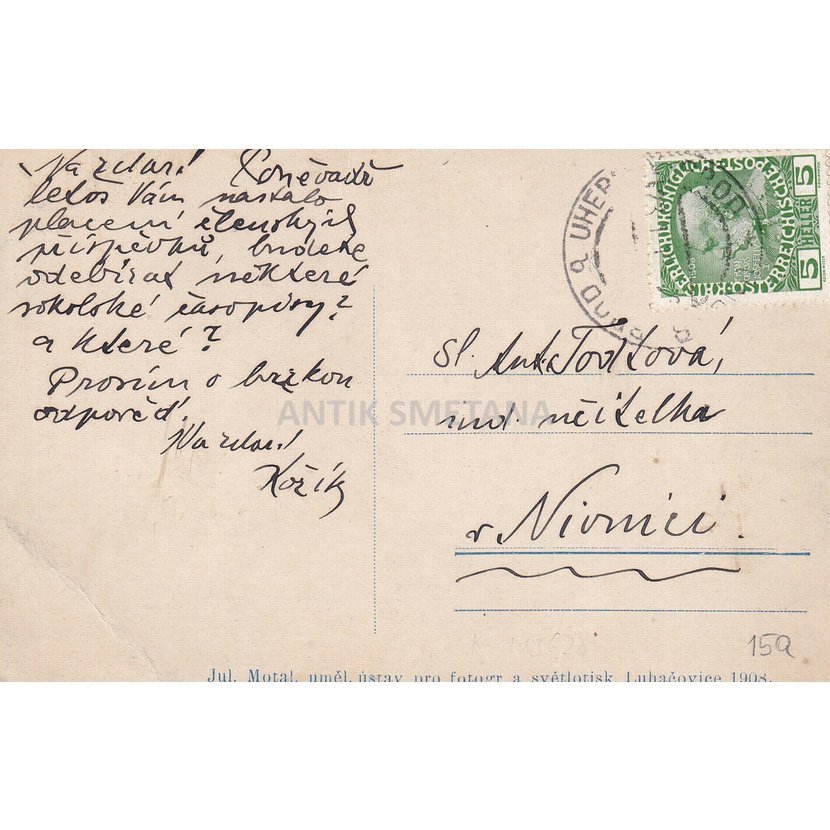 Nazdar! Poněvadž
letos Vám nastalo
placení členských
příspěvků, budete
odebírat některé
sokolské časopisy?
a které?
Prosím o brzkou
odpověď.
Nazdar!
Kožík
BROD UHER
BROD
5 HELLER 5
sl. Ant. Todtová,
ind. učitelka
v Nivnici.
ANTIK SMETANA
159
Jul. Motal, uměl. ústav pro fotogr. a světlotisk Luhačovice 1908.